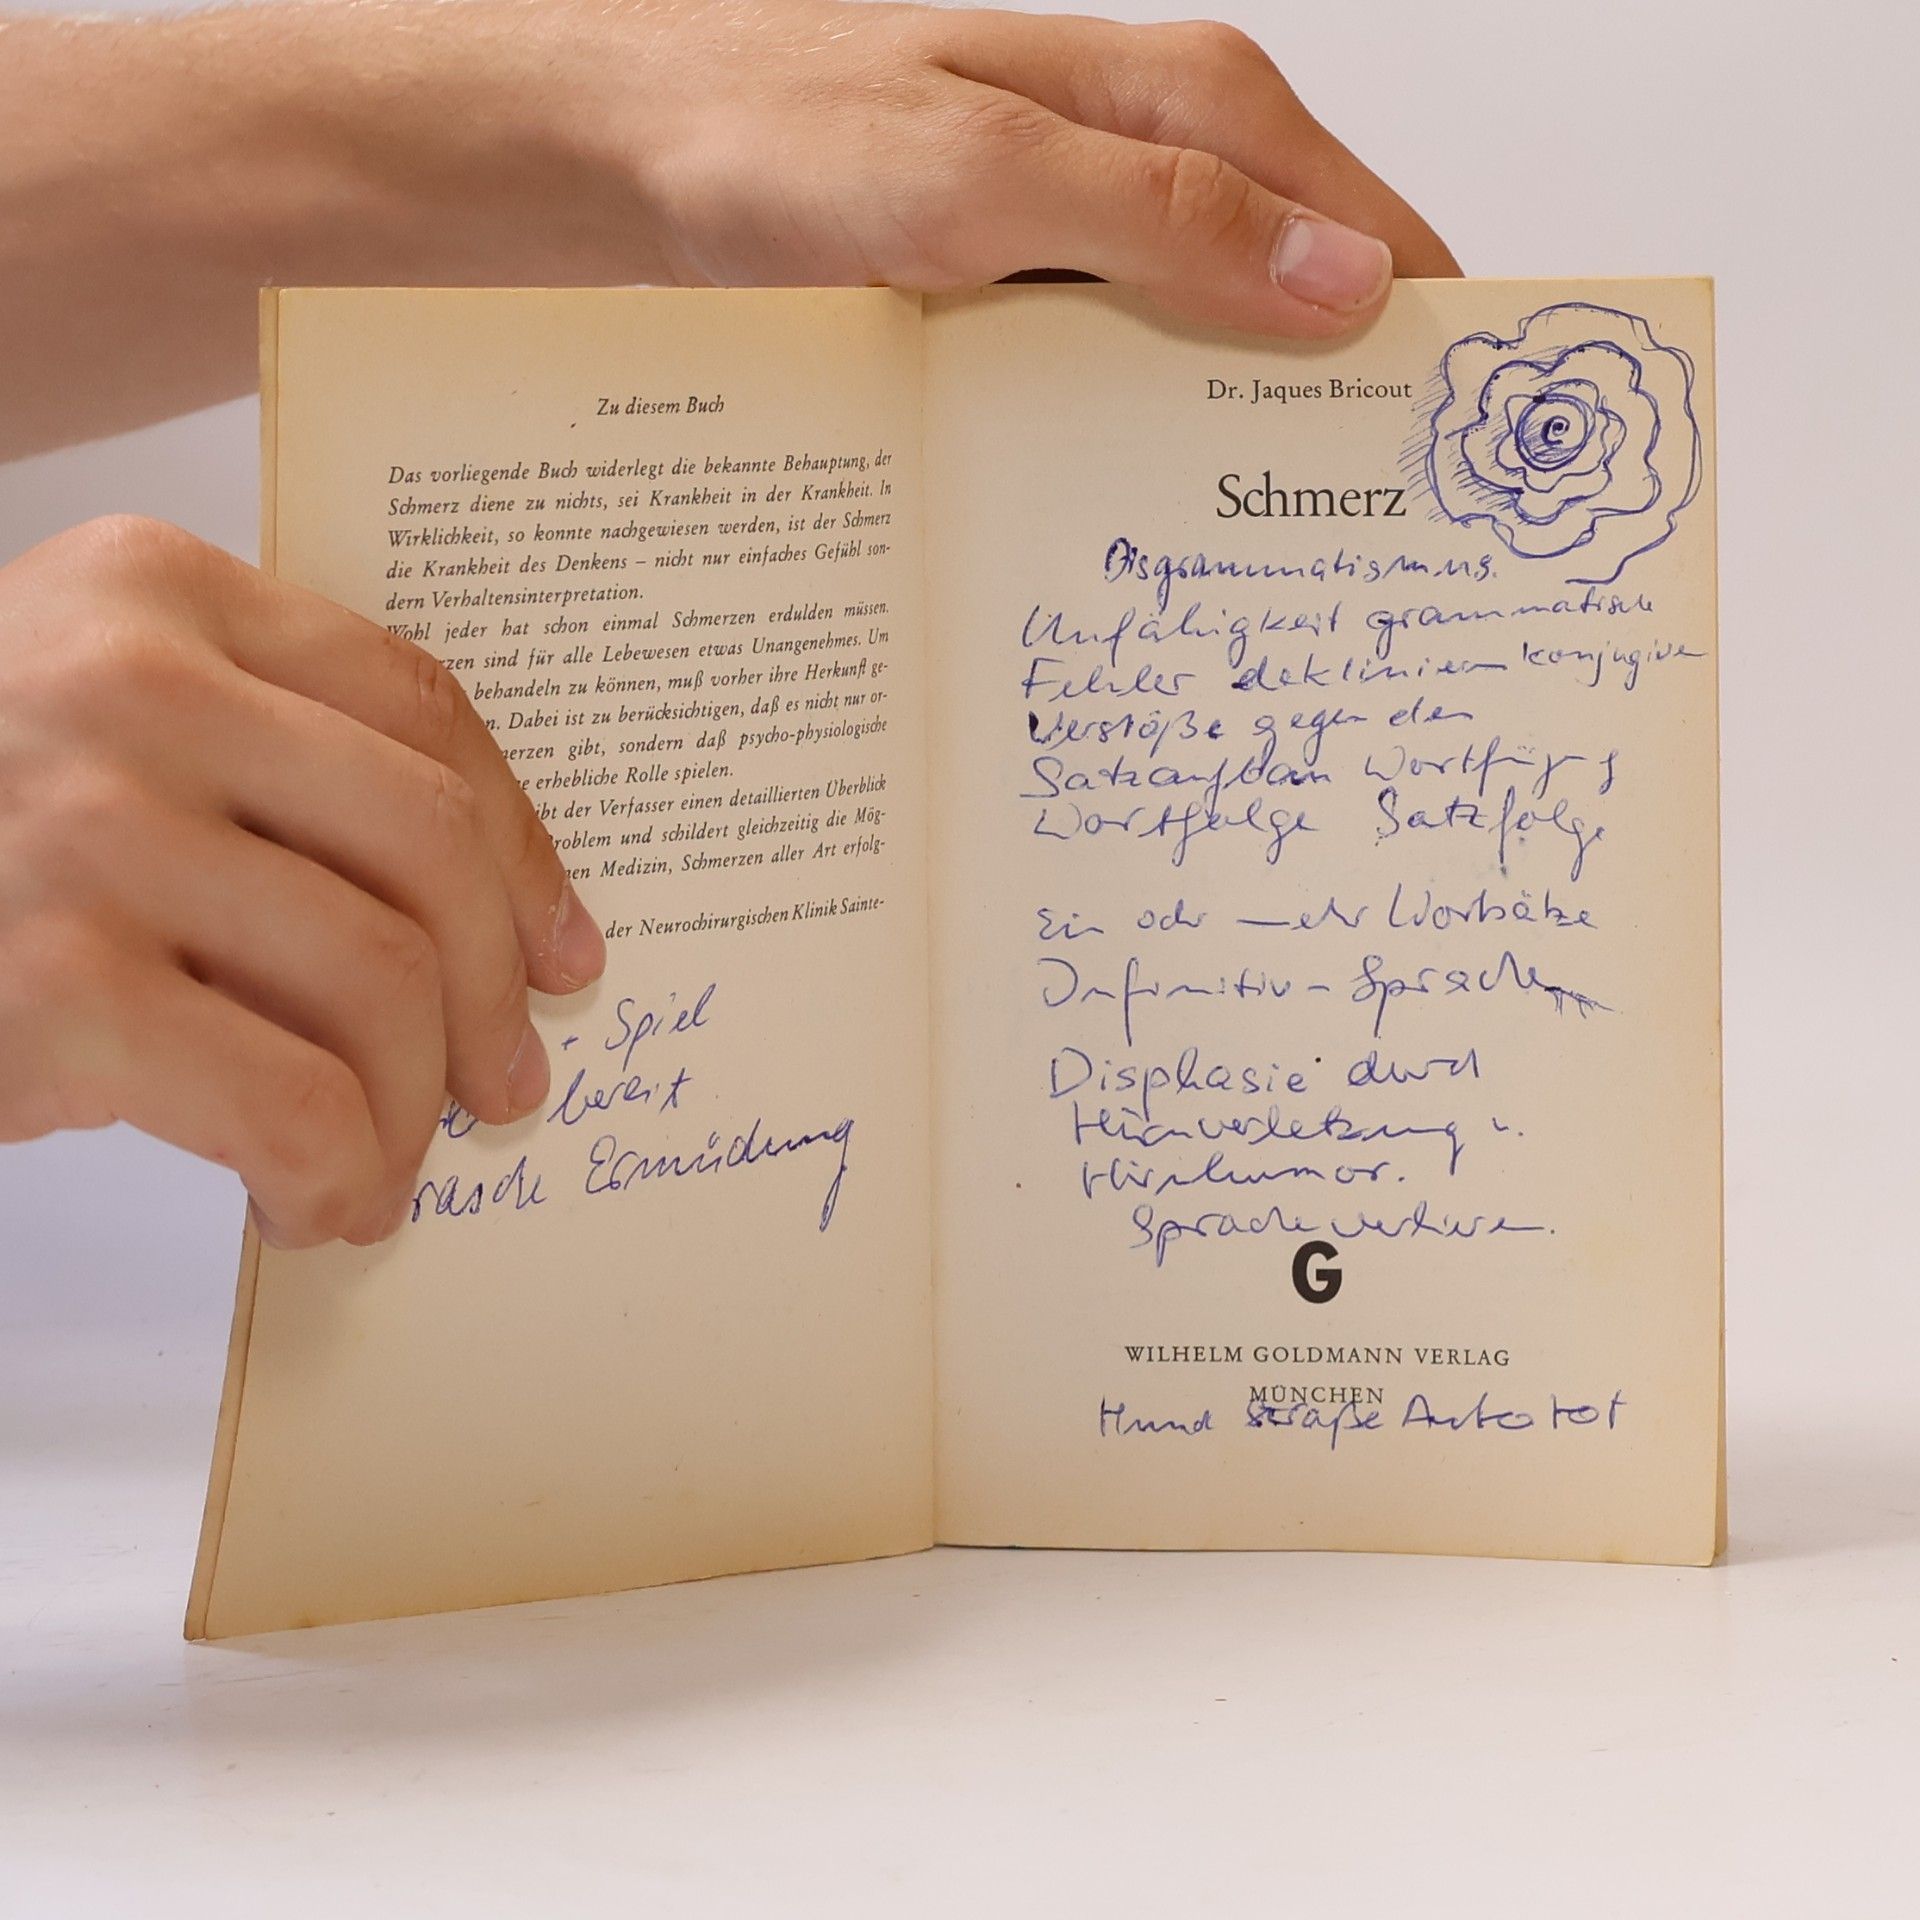 Zu diesem Buch
Das vorliegende Buch widerlegt die bekannte Behauptung, der
Schmerz diene zu nichts, sei Krankheit in der Krankheit. In
Wirklichkeit, so konnte nachgewiesen werden, ist der Schmerz
die Krankheit des Denkens – nicht nur einfaches Gefühl son-
dern Verhaltensinterpretation.
Wohl jeder hat schon einmal Schmerzen erdulden müssen.
rzen sind für alle Lebewesen etwas Unangenehmes. Um
behandeln zu können, muß vorher ihre Herkunft ge-
n. Dabei ist zu berücksichtigen, daß es nicht nur or-
merzen gibt, sondern daß psycho-physiologische
ne erhebliche Rolle spielen.
ibt der Verfasser einen detaillierten Überblick
Problem und schildert gleichzeitig die Mög-
nen Medizin, Schmerzen aller Art erfolg-
der Neurochirurgischen Klinik Sainte-
Spiel
bereit
rasche Ermüdung
Dr. Jaques Bricout
Schmerz
Disgrammatismus.
Unfähigkeit grammatische
Fehler deklinieren konjugiren
Verstöße gegen den
Satzaufbau Wortfügung
Wortfolge Satzfolge
Ein oder mehr Wortsätze
Infinitiv - Sprache
Disphasie durch
Hirnverletzung u.
Hirnhumor.
Sprache verlieren.
G
WILHELM GOLDMANN VERLAG
MÜNCHEN
Hund Straße Auto tot